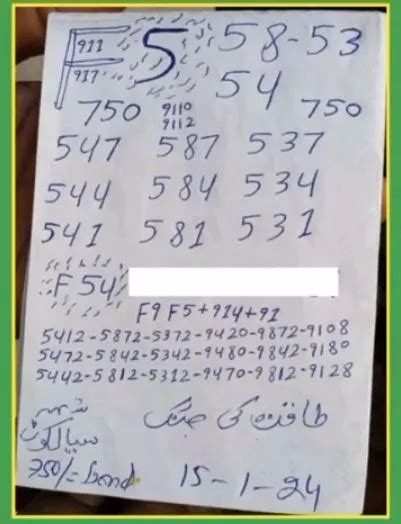 F 911 5 58-53
917 54
750 9110 750
9112
547 587 537
544 584 534
541 581 531
F 54
F9 F5+914+91
5412-5872-5372-9420-9872-9108
5472-5842-5342-9480-9842-9180
5442-5812-5312-9470-9812-9128
طاقت کی جنگ
سیالکوٹ
750/= Bond 15-1-24